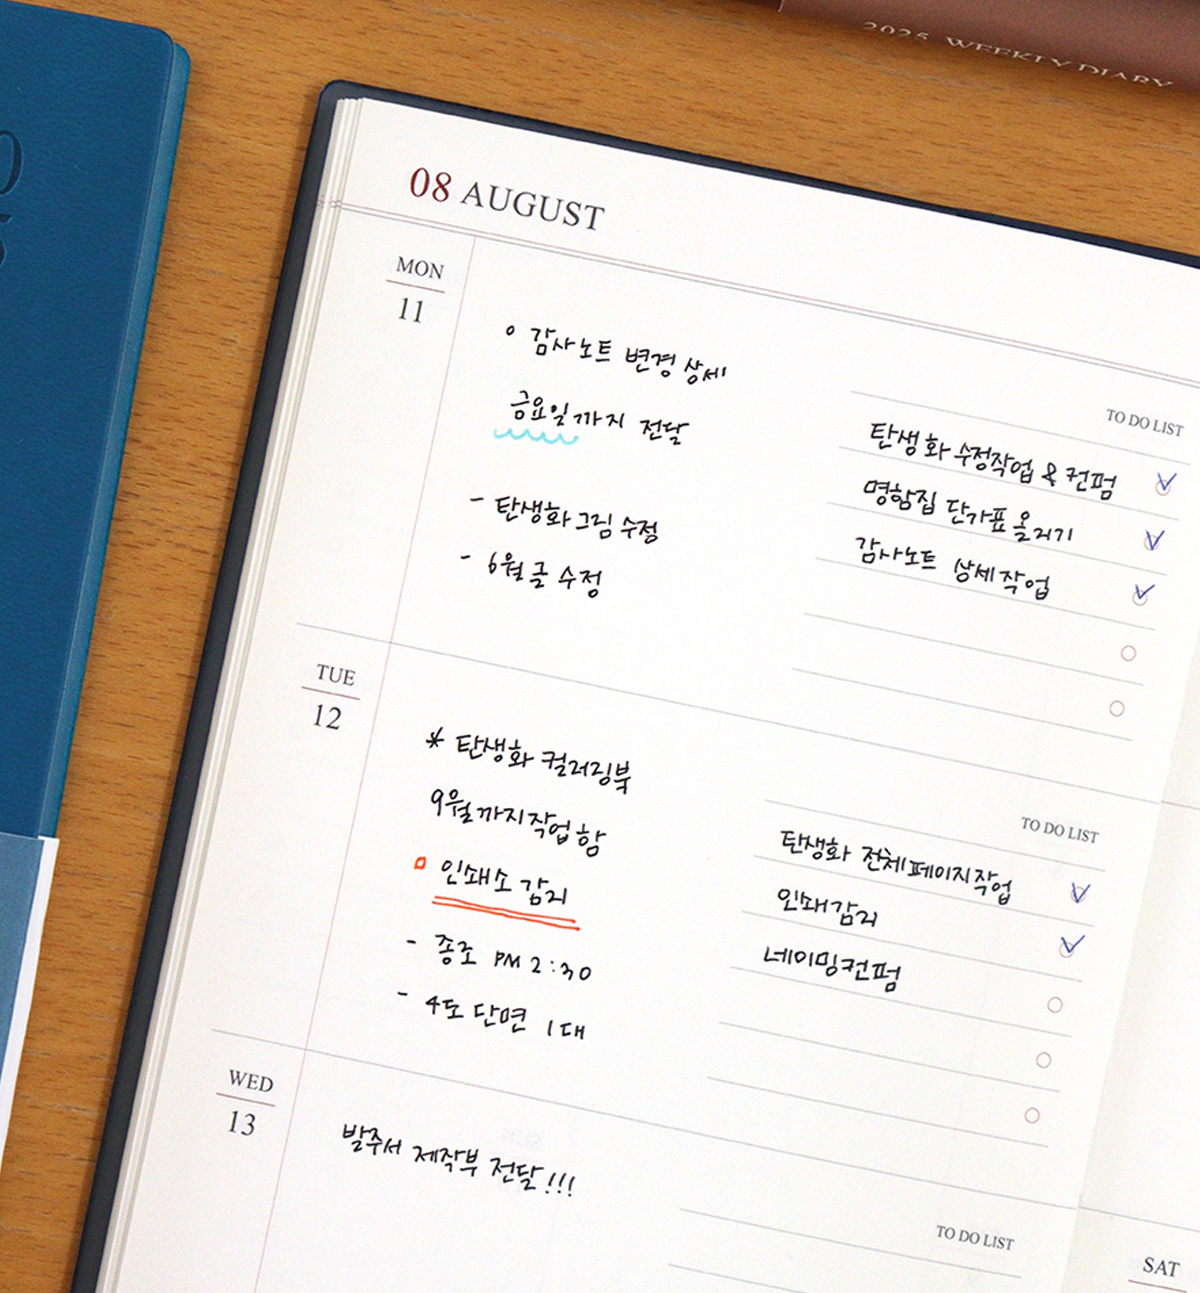 2025 WEEKLY DIARY
08 AUGUST
MON
11
○ 감사노트 변경 상세
금요일까지 전달
- 탄생화 그림 수정
- 6월 글 수정
TO DO LIST
탄생화 수정작업 & 컨펌
명함집 단가표 올리기
감사노트 상세작업
TUE
12
* 탄생화 컬러링북
9월까지 작업함
인쇄소 감리
- 종로 PM 2:30
- 4도 단면 1대
TO DO LIST
탄생화 전체페이지작업
인쇄감리
네이밍컨펌
WED
13
발주서 제작부 전달!!!
TO DO LIST
SAT